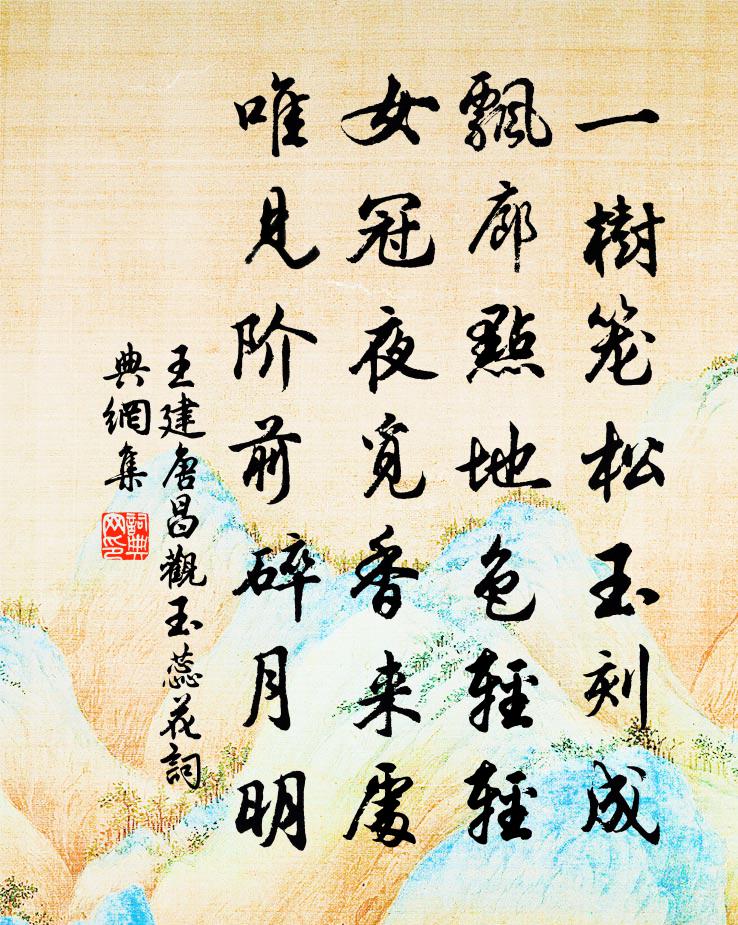 一樹笼松玉刻成
飄廊點地色輕輕
女冠夜覓香来處
唯見阶前碎月明
王建唐昌觀玉蕊花詞
典網集
詞典
网印